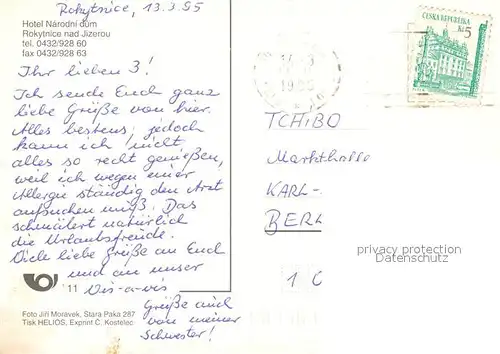 Rokytnice, 13.3.95
Hotel Národní dům
Rokytnice nad Jizerou
tel. 0432/928 60
fax 0432/928 63
Ihr lieben 3!
Ich sende Euch ganz
liebe Grüße von hier.
Alles bestens, jedoch
kann ich nicht
alles so recht genießen,
weil ich wegen einer
Allergie ständig den Arzt
aufsuchen muß. Das
schmälert natürlich
die Urlaubsfreude.
Viele liebe Grüße an Euch
und an unser
Vis-a-vis
11
Grüße auch
von meiner
Schwester!
Foto Jiří Moravek, Stara Paka 287
Tisk HELIOS, Exprint Č. Kostelec
ČESKÁ REPUBLIKA
Kč 5
1995
TCHIBO
Markthalle
KARL-
BERL
1 C
privacy protection
Datenschutz